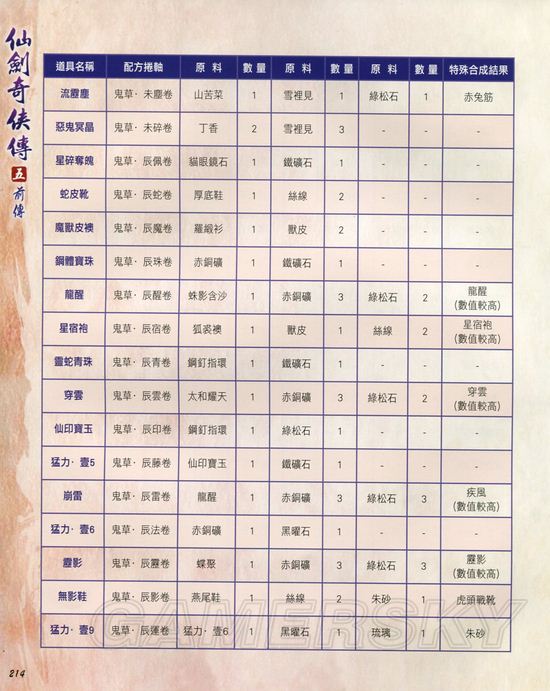 仙劍奇俠傳
五
前傳
道具名稱 配方捲軸 原料 數量 原料 數量 原料 數量 特殊合成結果
流靈塵 鬼草·未塵卷 山苦菜 1 雪裡見 1 綠松石 1 赤兔筋
惡鬼冥晶 鬼草·未碎卷 丁香 2 雪裡見 3 - - -
星碎奪魄 鬼草·辰佩卷 貓眼鏡石 1 鐵礦石 1 - - -
蛇皮靴 鬼草·辰蛇卷 厚底鞋 1 絲線 2 - - -
魔獸皮襖 鬼草·辰魔卷 羅緞衫 1 獸皮 2 - - -
鋼體寶珠 鬼草·辰珠卷 赤銅礦 1 鐵礦石 1 - - -
龍醒 鬼草·辰醒卷 蛛影含沙 1 赤銅礦 3 綠松石 2 龍醒
(數值較高)
星宿袍 鬼草·辰宿卷 狐裘襖 1 獸皮 1 絲線 2 星宿袍
(數值較高)
靈蛇青珠 鬼草·辰青卷 鋼釘指環 1 鐵礦石 1 - - -
穿雲 鬼草·辰雲卷 太和耀天 1 赤銅礦 3 綠松石 2 穿雲
(數值較高)
仙印寶玉 鬼草·辰印卷 鋼釘指環 1 綠松石 1 - - -
猛力·壹5 鬼草·辰藤卷 仙印寶玉 1 鐵礦石 1 - - -
崩雷 鬼草·辰雷卷 龍醒 1 赤銅礦 3 綠松石 3 疾風
(數值較高)
猛力·壹6 鬼草·辰法卷 赤銅礦 1 黑曜石 1 - - -
靂影 鬼草·辰靂卷 蝶聚 1 赤銅礦 3 綠松石 3 靂影
(數值較高)
無影鞋 鬼草·辰影卷 燕尾鞋 1 絲線 2 朱砂 1 虎頭戰靴
猛力·壹9 鬼草·辰運卷 猛力·壹6 1 黑曜石 1 琉璃 1 朱砂
GAMERSKY
214